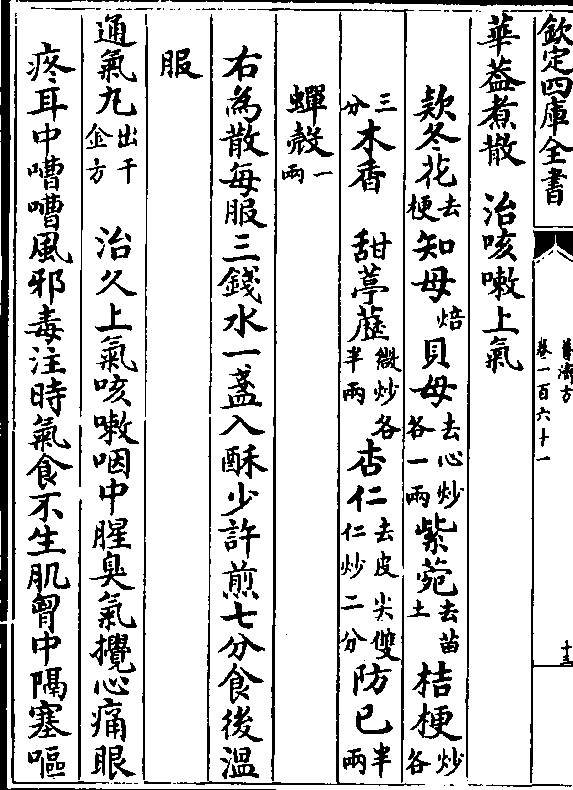 欽定四庫全書
普濟方
卷一百六十一
十三
華葢煮散 治咳嗽上氣
欵冬花去梗 知母焙 貝母去心炒各一兩 紫菀去苗土 桔梗炒各
三分 木香 甜葶藶微炒各半兩 杏仁去皮尖雙仁炒二分 防已半兩
蟬殼一兩
右為散每服三錢水一盞入酥少許煎七分食後溫
服
通氣丸出千金方 治久上氣咳嗽咽中腥臭氣攪心痛眼
疼耳中嘈嘈風邪毒注時氣食不生肌胷中隔塞嘔